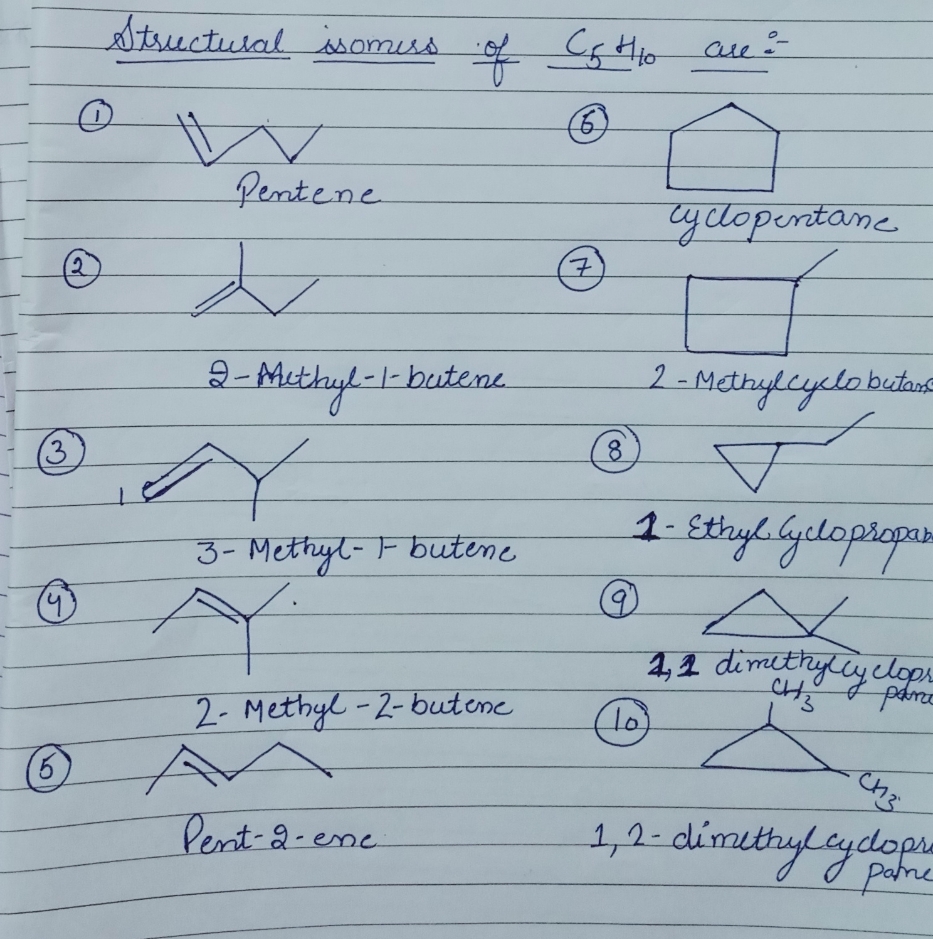 Structural isomers of C₅H₁₀ are :-
① Pentene
② 2-Methyl-1-butene
③ 1
3-Methyl-1-butene
④ 2-Methyl-2-butene
⑤ Pent-2-ene
⑥ cyclopentane
⑦ 2-Methylcyclobutan
⑧ 1-Ethyl Cyclopropan
⑨ 1,1 dimethylcyclopr
pane
⑩ CH₃
CH₃
1,2-dimethylcyclopr
pane